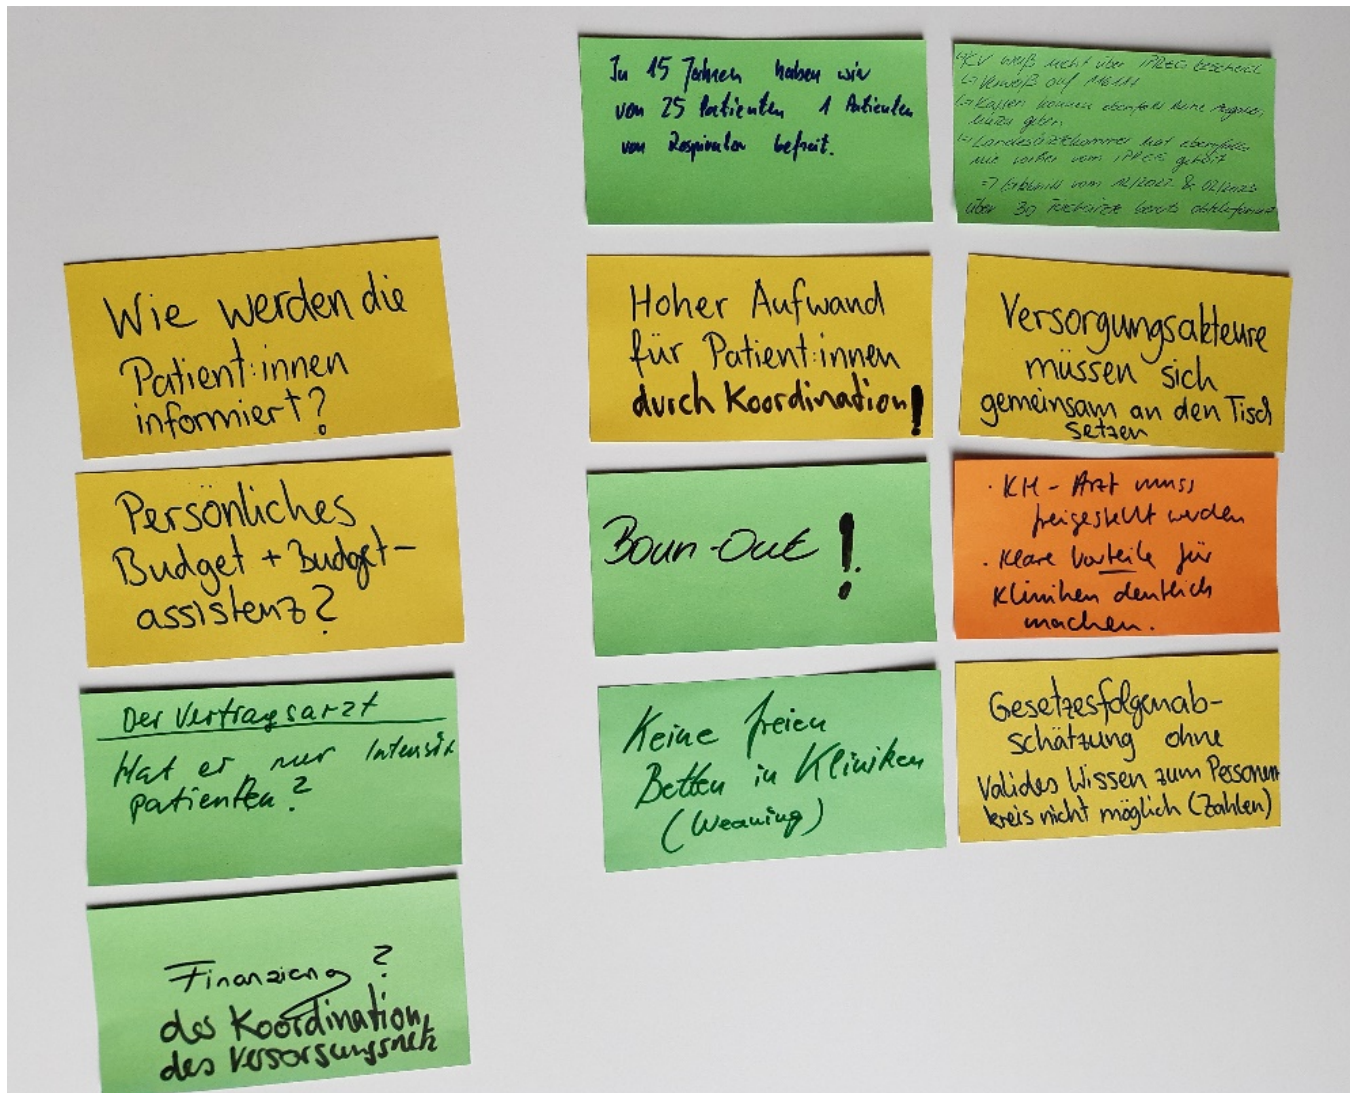 Wie werden die
Patient:innen
informiert?
Persönliches
Budget + Budget-
assistenz?
Der Vertragsarzt
Hat er nur Intensiv
patienten?
Finanzierung?
des Koordination,
des Versorgungsnetz
In 15 Jahren haben wir
von 25 Patienten 1 Patienten
von Respirator befreit.
Hoher Aufwand
für Patient:innen
durch Koordination!
Boun-Out!
Keine freien
Betten in Kliniken
(Weaning)
KV weiß nicht über IPREG bescheid
Verweiß auf
Kassen können ebenfalls keine
geben
Landesärztekammer hat ebenfalls
nie vorher vom IPREG gehört
vom 12/2022 & 02/2023
über 30 Fachärzte bereits abtelefoniert
Versorgungsakteure
müssen sich
gemeinsam an den Tisch
setzen
· KH-Arzt muss
freigestellt werden
· Klare Vorteile für
Kliniken deutlich
machen.
Gesetzesfolgenab-
schätzung ohne
Valides Wissen zum Personen
kreis nicht möglich (Zahlen)